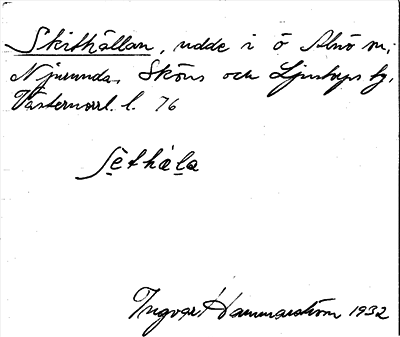 Skithällan, udde i ö Alnö sn,
Njurunda, Sköns och Ljustorps tg,
Västernorrl. l. 76
Ingvar Hammarström 1932